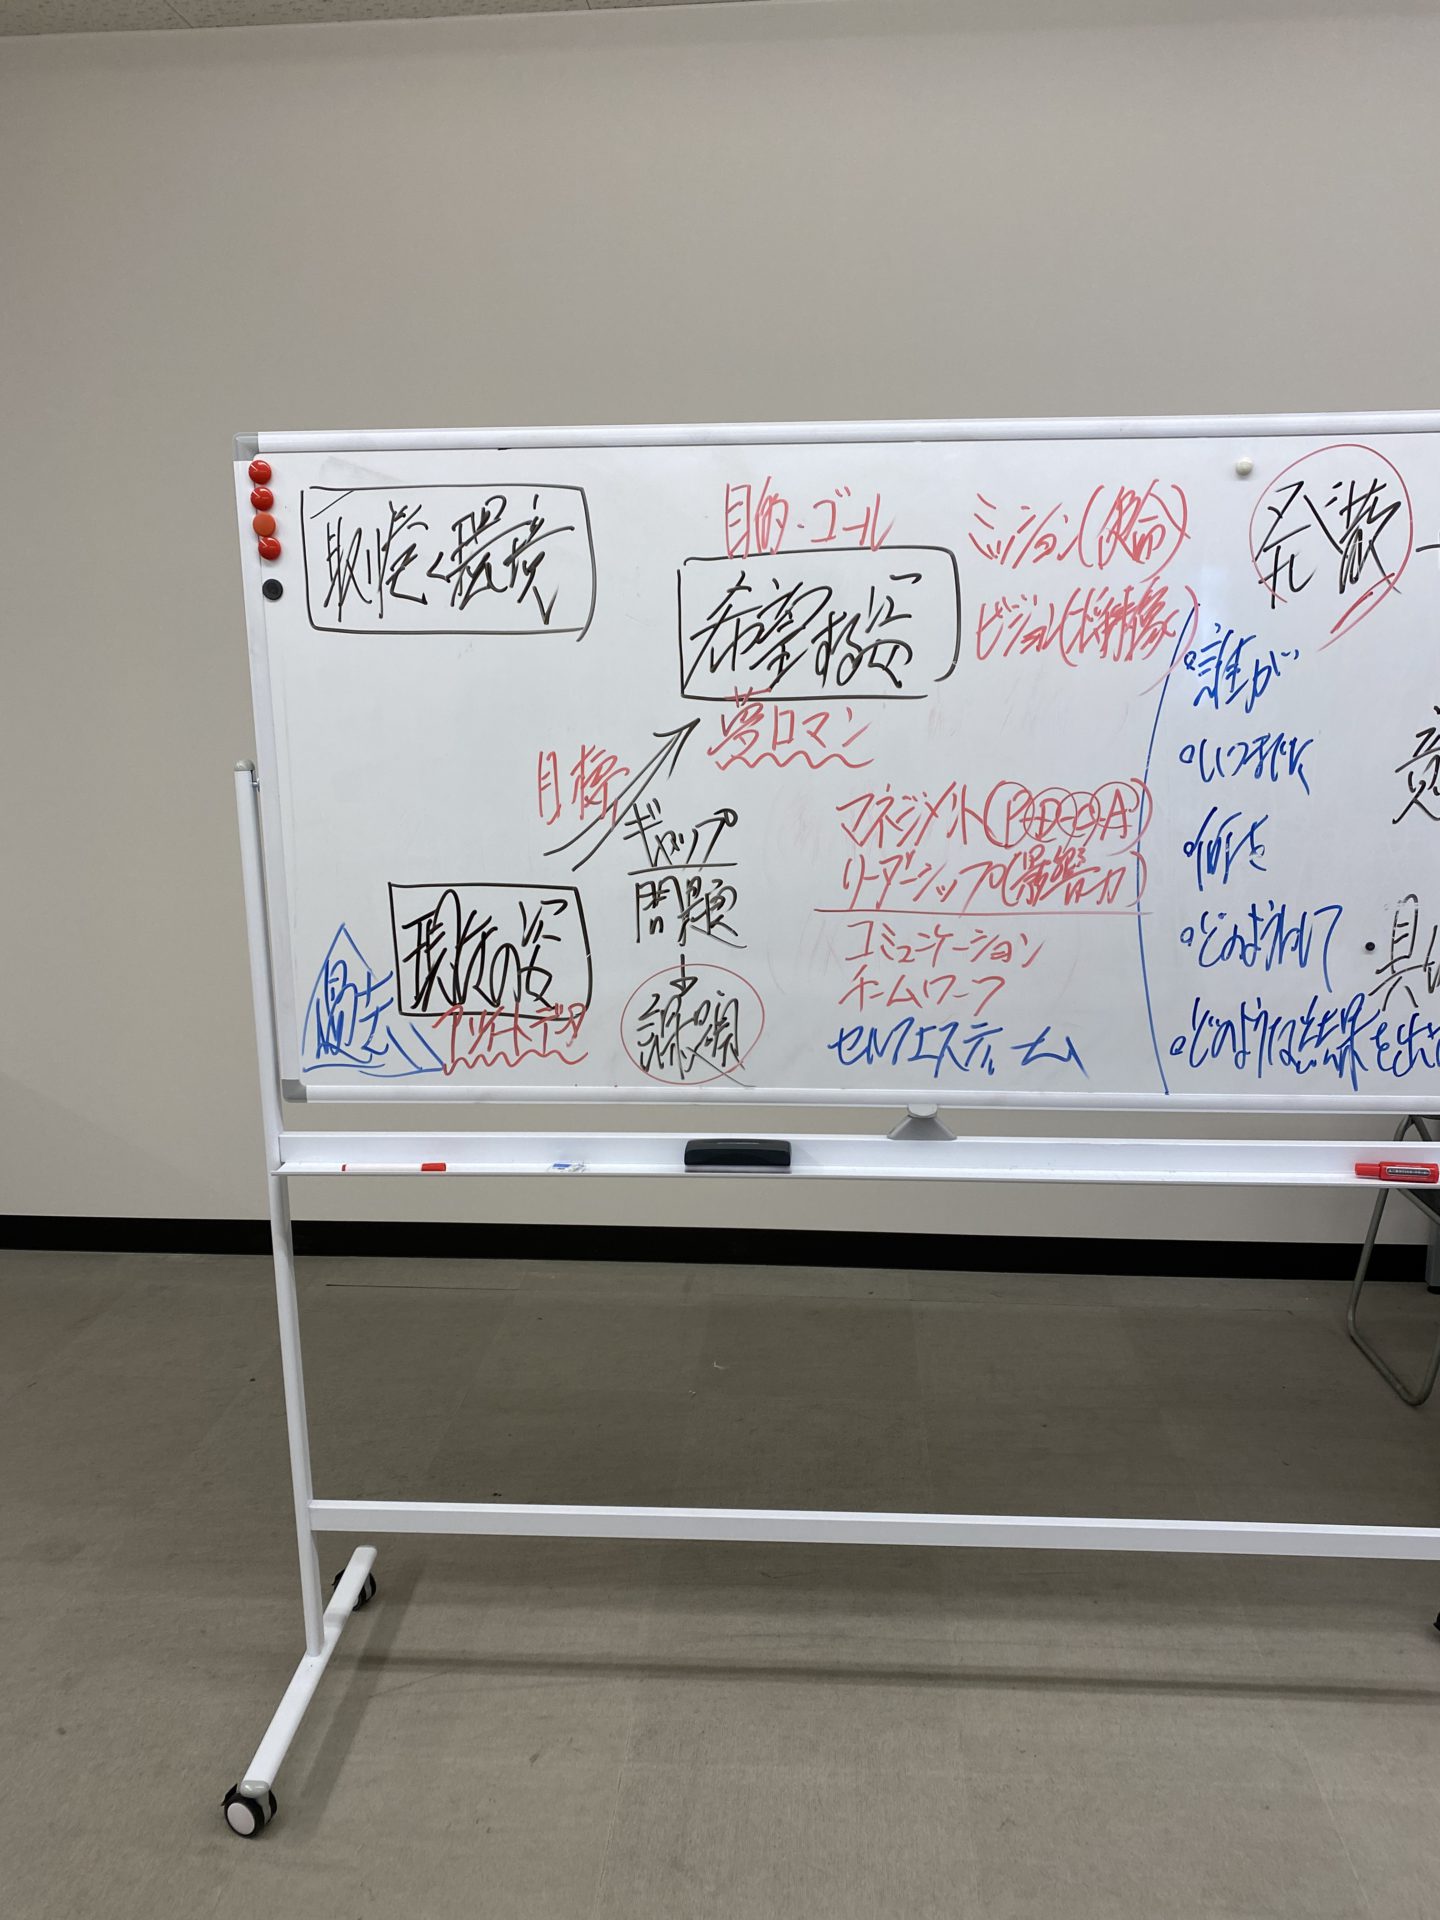 取り巻く環境
目的・ゴール
希望する姿
夢ロマン
ミッション(使命)
ビジョン(将来像)
発散
目標
ギャップ
問題
課題
現在の姿
過去
マネジメント(P-D-C-A)
リーダーシップ(影響力)
コミュニケーション
チームワーク
セルフエスティーム
誰が
いつまでに
何を
どのようにして
どのような結果を出